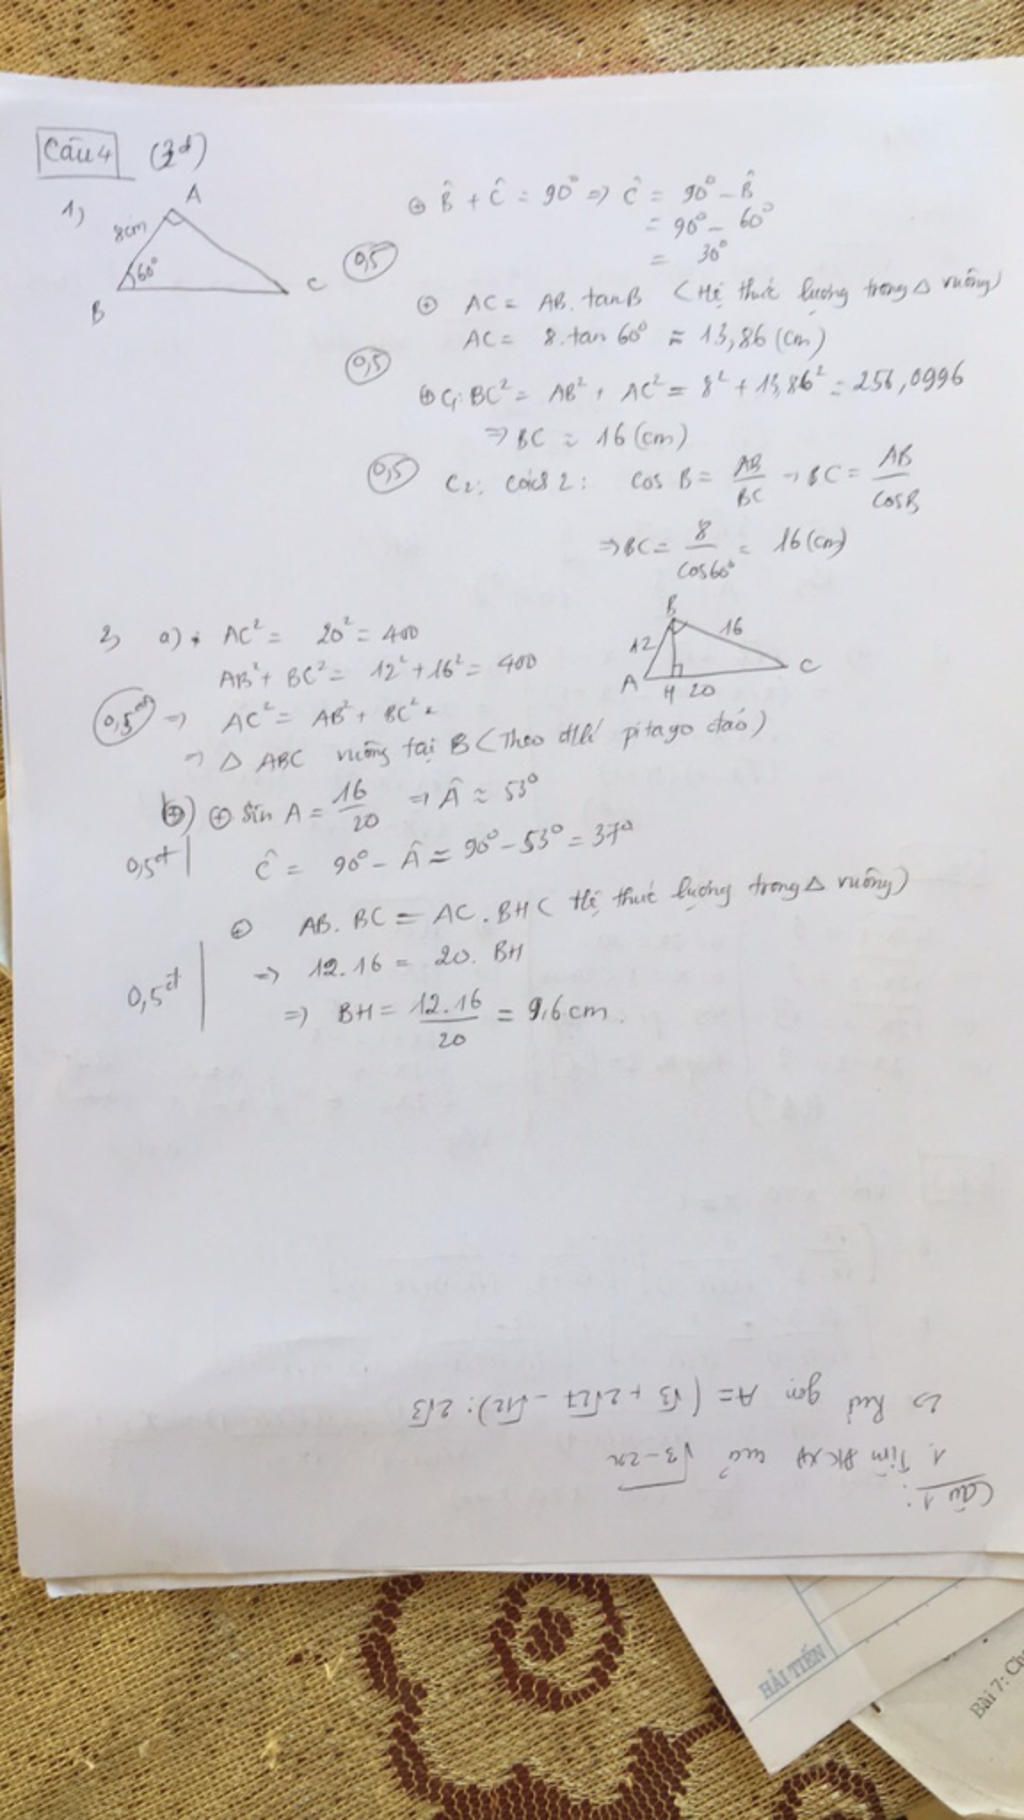 Câu 4 (3đ)
1)
A
8cm
60°
B
C
⊕ B̂ + Ĉ = 90° => Ĉ = 90° - B̂
= 90° - 60°
= 30°
0,5
⊕ AC = AB. tanB (Hệ thức lượng trong Δ vuông)
AC = 8.tan 60° ≈ 13,86 (cm)
0,5
⊕ C1: BC² = AB² + AC² = 8² + 13,86² = 256,0996
=> BC ≈ 16 (cm)
0,5
C2: cách 2: cos B = AB/BC → BC = AB/cosB
=> BC = 8/cos60° = 16 (cm)
B
12
16
A
H
20
C
2, a) AC² = 20² = 400
AB² + BC² = 12² + 16² = 400
0,5đ => AC² = AB² + BC²
=> Δ ABC vuông tại B (Theo đlí pitago đảo)
b) ⊕ Sin A = 16/20 => Â ≈ 53°
0,5đ Ĉ = 90° - Â = 90° - 53° = 37°
⊕ AB. BC = AC. BH (Hệ thức lượng trong Δ vuông)
=> 12.16 = 20. BH
0,5đ
=> BH = 12.16/20 = 9,6cm.
Câu 1:
1. Tìm ĐKXĐ của √3-2x
2) Rút gọn A = (√3 + 2√27 - √12) : 2√3
HẢI TIẾN
Bài 7: